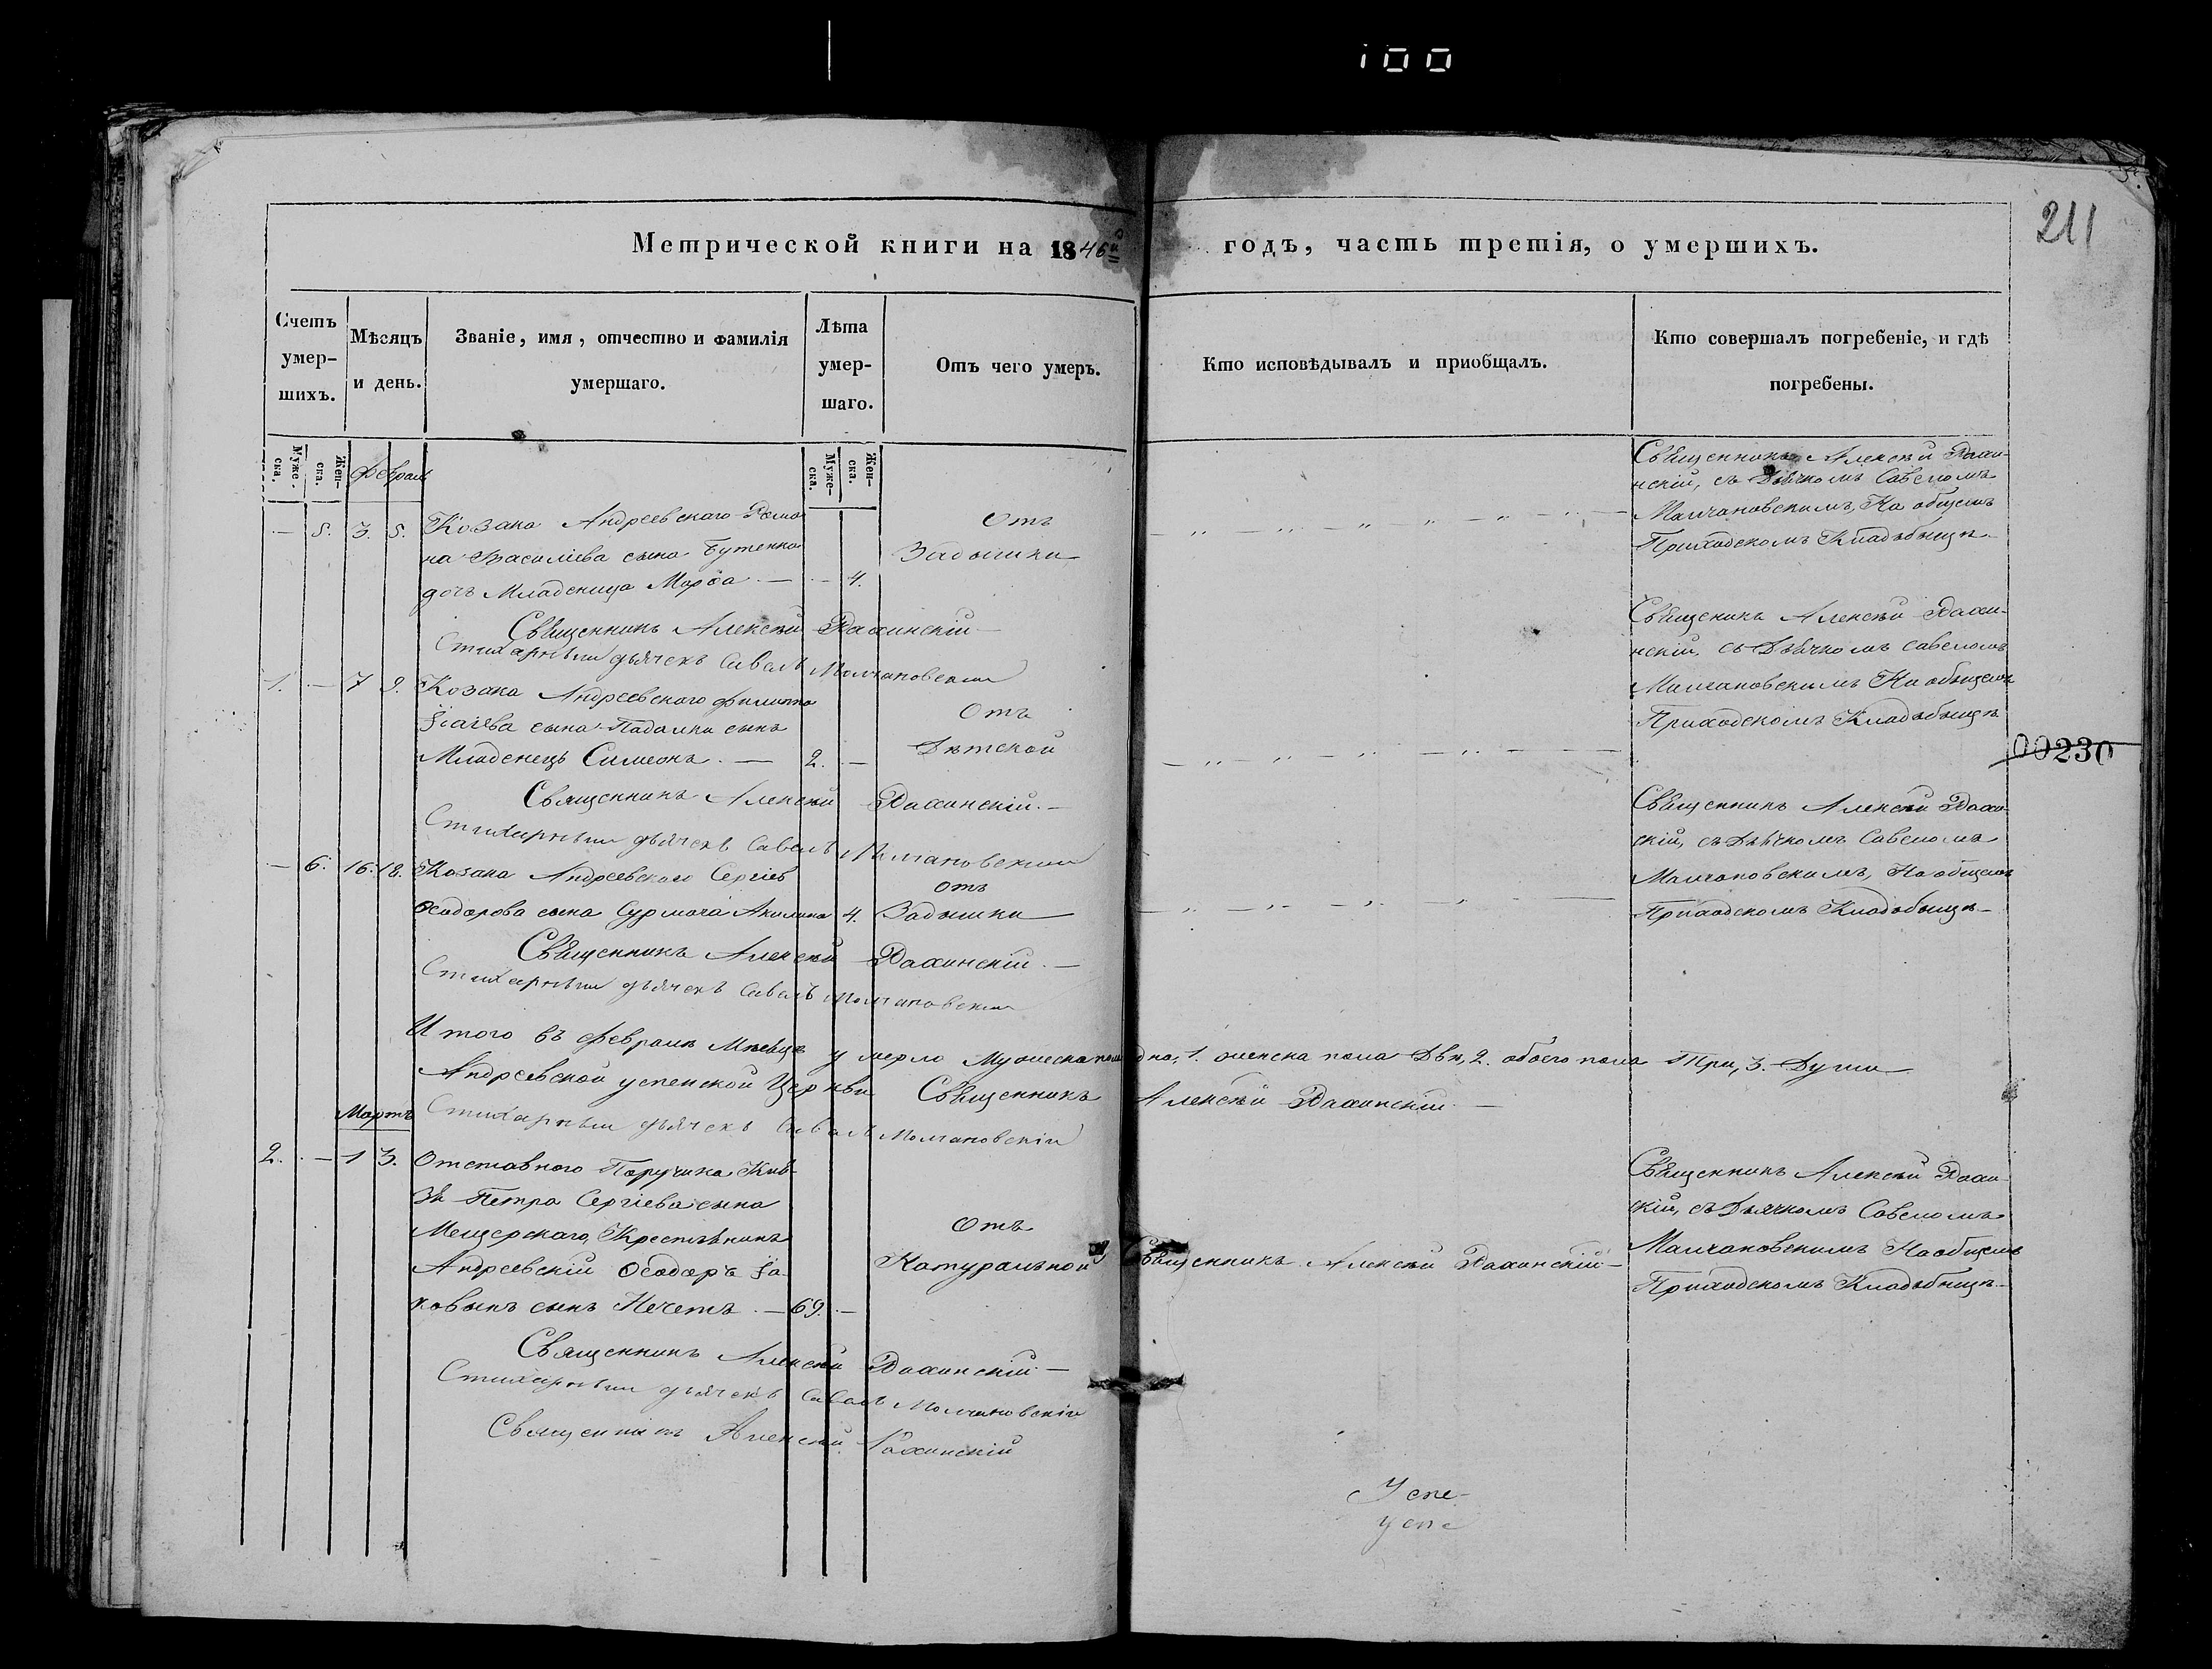 100
211
Метрической книги на 1846й годъ, часть третія, о умершихъ.
Счетъ умер-шихъ.
Мѣсяцъ и день.
Званіе, имя, отчество и фамилія умершаго.
Лѣта умер-шаго.
Отъ чего умеръ.
Кто исповѣдывалъ и приобщалъ.
Кто совершалъ погребеніе, и гдѣ погребены.
Муже-ска.
Жен-ска.
Февраль
Муже-ска.
Жен-ска.
— 5. 3. 5. Козака Андреевскаго Рома-
на Василіева сына Бутенка
дочь Младеница Марѳа — — 4.
Отъ
Задышки
Священникъ Алексѣй Рахи-
нскій, съ Дьячкомъ Савеломъ
Малчановскимъ, На общемъ
Приходскомъ Кладьбищѣ
Священникъ Алексѣй Рахинскій
Стихарный дьячекъ Савелъ Молчановскій
1. — 7 9. Козака Андреевскаго Филиппа
сына Падалки сынъ
Младенецъ Симеонъ — 2. —
Отъ
Дѣтской
Священикъ Алексѣй Рахи-
нскій, съ Дьячкомъ Савеломъ
Малчановскимъ На общемъ
Приходскомъ Кладьбищѣ
00230
Священникъ Алексѣй Рахинскій
Стихарный дьячекъ Савелъ Молчановскій
— 6. 16. 18. Козака Андреевскаго Сергіев
Ѳеодорова сына Сурмача Акилина 4.
отъ
Задышки
Священникъ Алексѣй Рахи-
скій, съ Дьячкомъ Савеломъ
Малчановскимъ, На общемъ
Приходскомъ Кладьбищѣ
Священникъ Алексѣй Рахинскій
Стихарный дьячекъ Савелъ Молчановскій
Итого въ Февралѣ Мѣсяцѣ умерло Мужеска пола 1. женска пола Двѣ, 2. обоего пола Три, 3. Души
Андреевской успенской Церкви Священникъ Алексѣй Рахинскій
Стихарный дьячекъ Савелъ Молчановскій
Мартъ
2. — 1 3. Отставного Поручика Кня-
зя Петра Сергіева сына
Мещерскаго, Крестьянинъ
Андреевскій Ѳеодоръ Іа-
ковынъ сынъ Нечетъ — 69. —
Отъ
Натуральной
Священникъ Алексѣй Рахинскій
Священникъ Алексѣй Рахи-
скій, съ Дьячкомъ Савеломъ
Малчановскимъ На общемъ
Приходскомъ Кладьбищѣ
Священникъ Алексѣй Рахинскій
Стихарный дьячекъ Савелъ Молчановскій
Священникъ Алексѣй Рахинскій
Успе-
успе